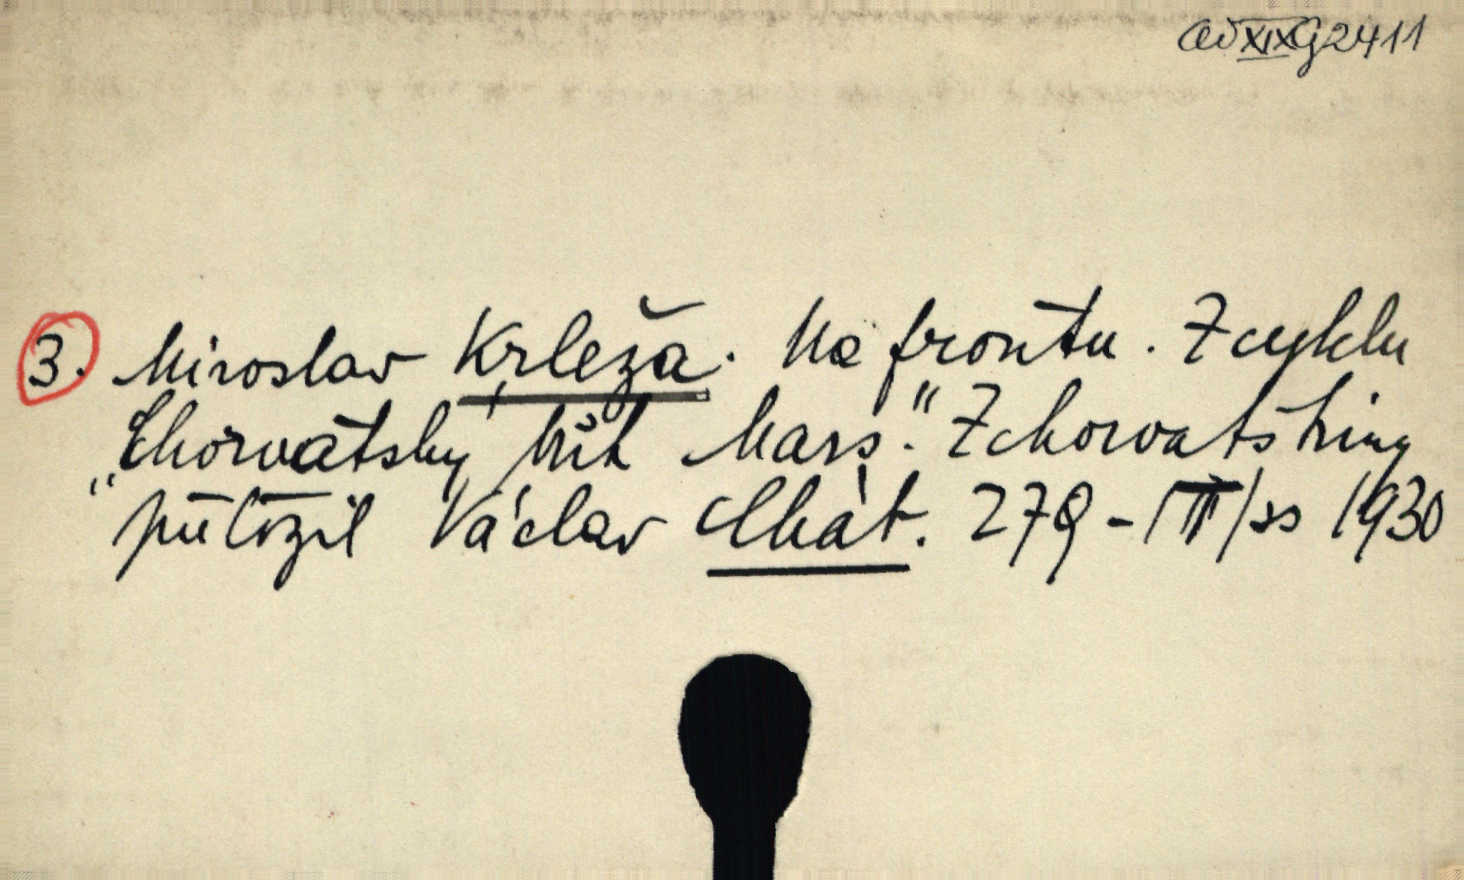 ad XIX G 2411
3. Miroslav Krleža. Na frontu. Z cyklu
„Chorvatský Bůh Mars." Z chorvatštiny
přeložil Václav Chát. 279 - 1930